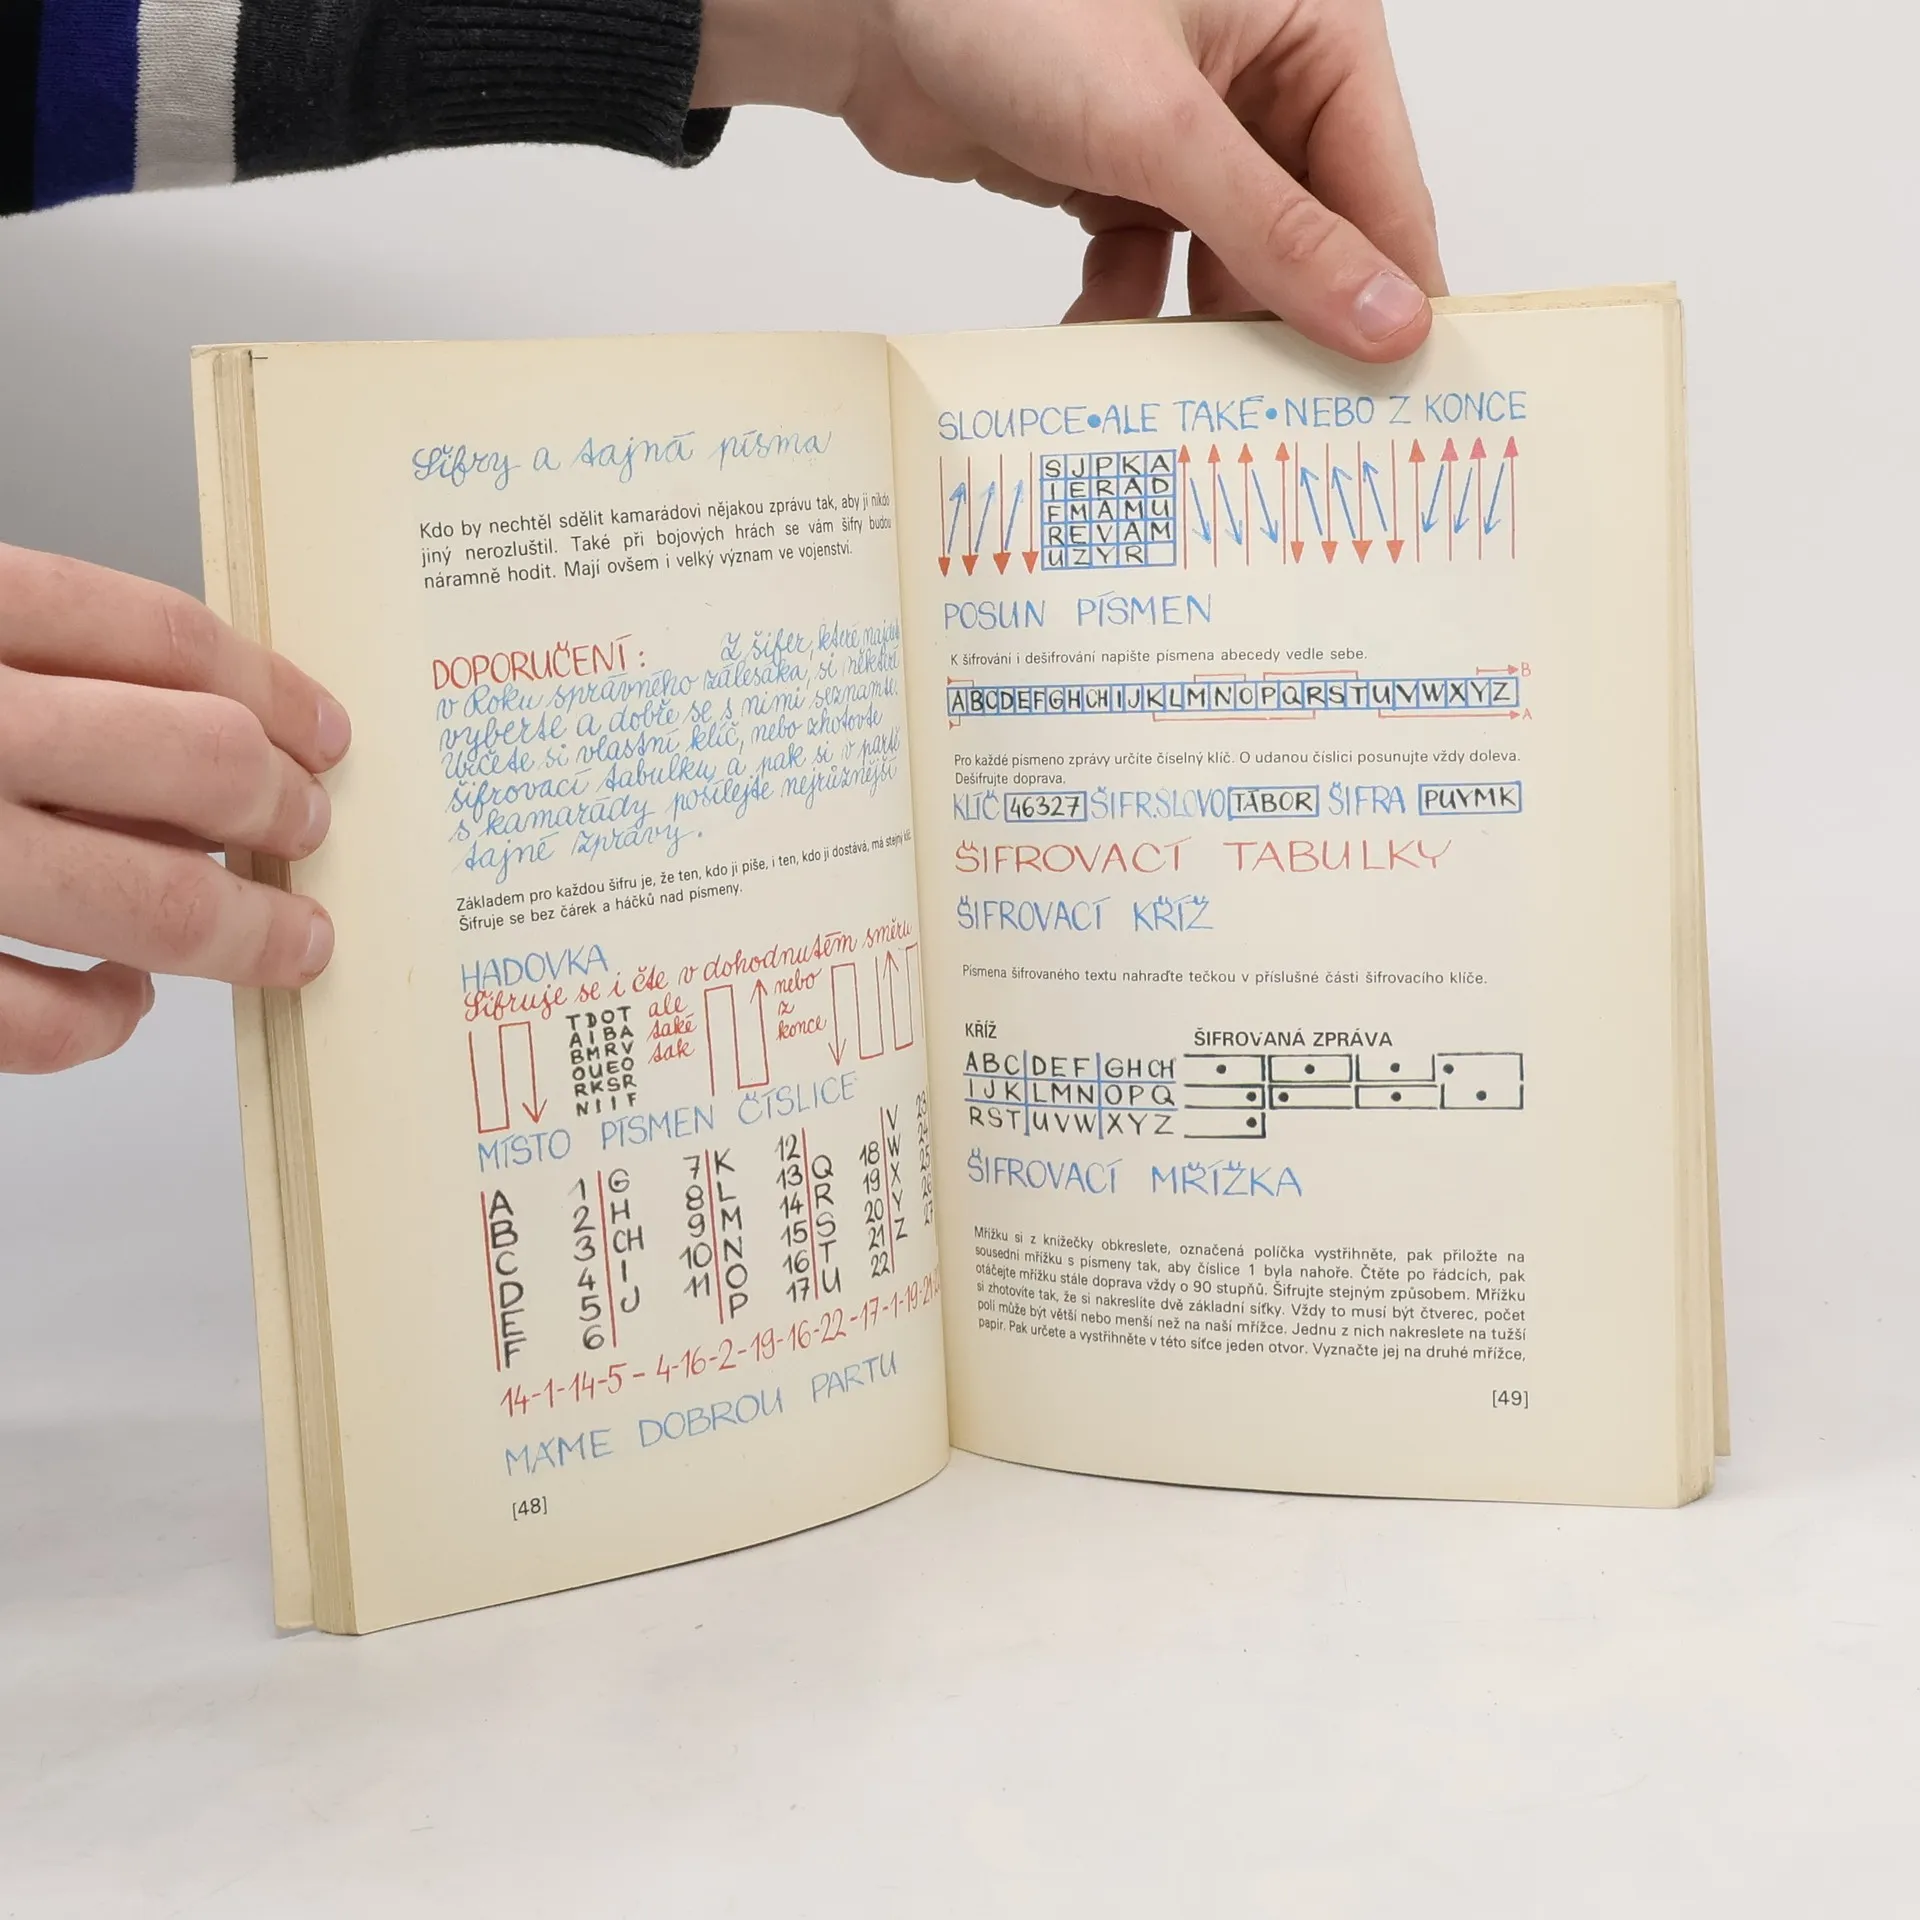 Šifry a tajná písma
Kdo by nechtěl sdělit kamarádovi nějakou zprávu tak, aby ji nikdo
jiný nerozluštil. Také při bojových hrách se vám šifry budou
náramně hodit. Mají ovšem i velký význam ve vojenství.
DOPORUČENÍ: Z šifer, které najdete
v Roku správného zálesáka, si některé
vyberte a dobře se s nimi seznamte.
Určete si vlastní klíč, nebo zhotovte
šifrovací tabulku a pak si v partě
s kamarády posílejte nejrůznější
tajné zprávy.
Základem pro každou šifru je, že ten, kdo ji píše, i ten, kdo ji dostává, má stejný klíč.
Šifruje se bez čárek a háčků nad písmeny.
HADOVKA
Šifruje se i čte v dohodnutém směru
TDOT
AIBA
BMRV
OUEO
RKSR
NIIF
ale
také
tak
nebo
z
konce
MÍSTO PÍSMEN ČÍSLICE
A 1 G 7 K 12 Q 18 V 23
B 2 H 8 L 13 R 19 W 24
C 3 CH 9 M 14 S 20 X 25
D 4 I 10 N 15 T 21 Y 26
E 5 J 11 O 16 U 22 Z 27
F 6 P 17
14-1-14-5-4-16-2-19-16-22-17-1-19-21-
MÁME DOBROU PARTU
[48]
SLOUPCE•ALE TAKÉ•NEBO Z KONCE
SJPKA
IERAD
FMAMU
REVAM
UZYR
POSUN PÍSMEN
K šifrování i dešifrování napište písmena abecedy vedle sebe.
B
ABCDEFGHCHIJKLMNOPQRSTUVWXYZ
A
Pro každé písmeno zprávy určíte číselný klíč. O udanou číslici posunujte vždy doleva.
Dešifrujte doprava.
KLÍČ 46327 ŠIFR.SLOVO TÁBOR ŠIFRA PUYMK
ŠIFROVACÍ TABULKY
ŠIFROVACÍ KŘÍŽ
Písmena šifrovaného textu nahraďte tečkou v příslušné části šifrovacího klíče.
KŘÍŽ
ŠIFROVANÁ ZPRÁVA
ABC DEF GHCH
IJK LMN OPQ
RST UVW XYZ
ŠIFROVACÍ MŘÍŽKA
Mřížku si z knížečky obkreslete, označená políčka vystřihněte, pak přiložte na
sousední mřížku s písmeny tak, aby číslice 1 byla nahoře. Čtěte po řádcích, pak
otáčejte mřížku stále doprava vždy o 90 stupňů. Šifrujte stejným způsobem. Mřížku
si zhotovíte tak, že si nakreslíte dvě základní síťky. Vždy to musí být čtverec, počet
polí může být větší nebo menší než na naší mřížce. Jednu z nich nakreslete na tužší
papír. Pak určete a vystřihněte v této síťce jeden otvor. Vyznačte jej na druhé mřížce,
[49]